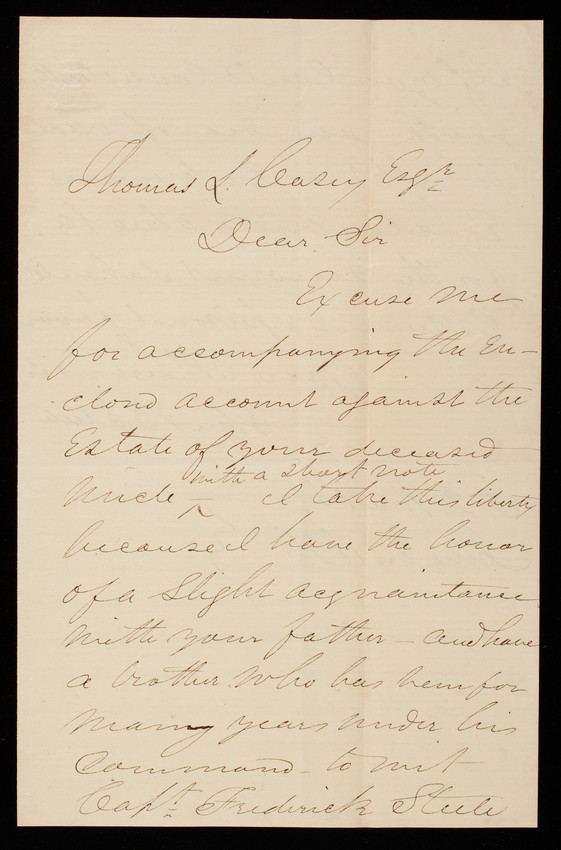 Thomas L. Casey Esqr
Dear Sir
Excuse me
for accompanying the En-
closd account against the
Estate of your deceased
with a short note
Uncle – I take this liberty
because I have the honor
of a Slight acquaintance
with your father – and have
a brother who has been for
many years under his
Command – to wit
Capt. Frederick Steele